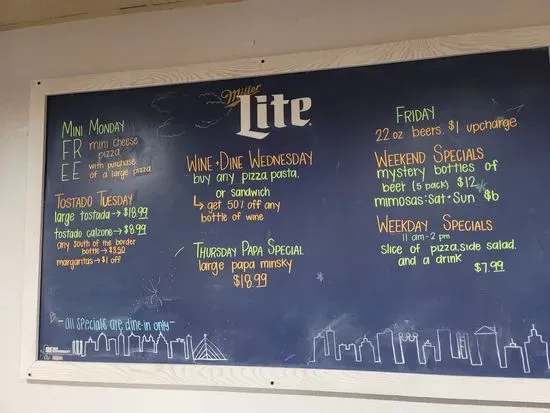 Miller
Lite
Mini Monday
FR
EE
mini cheese
pizza
with purchase
of a large pizza
Tostado Tuesday
large tostada → $18.99
tostado calzone → $8.99
any South of the border
bottle → $3.50
margaritas → $1 off
Wine + Dine Wednesday
buy any pizza, pasta,
or sandwich
↳ get 50% off any
bottle of wine
Thursday Papa Special
large papa minsky
$18.99
Friday
22 oz beers. $1 upcharge
Weekend Specials
mystery bottles of
beer (5 pack) $12
mimosas: Sat + Sun $6
Weekday Specials
11 am - 2 pm
slice of pizza, side salad,
and a drink
$7.99
- all specials are dine-in only -